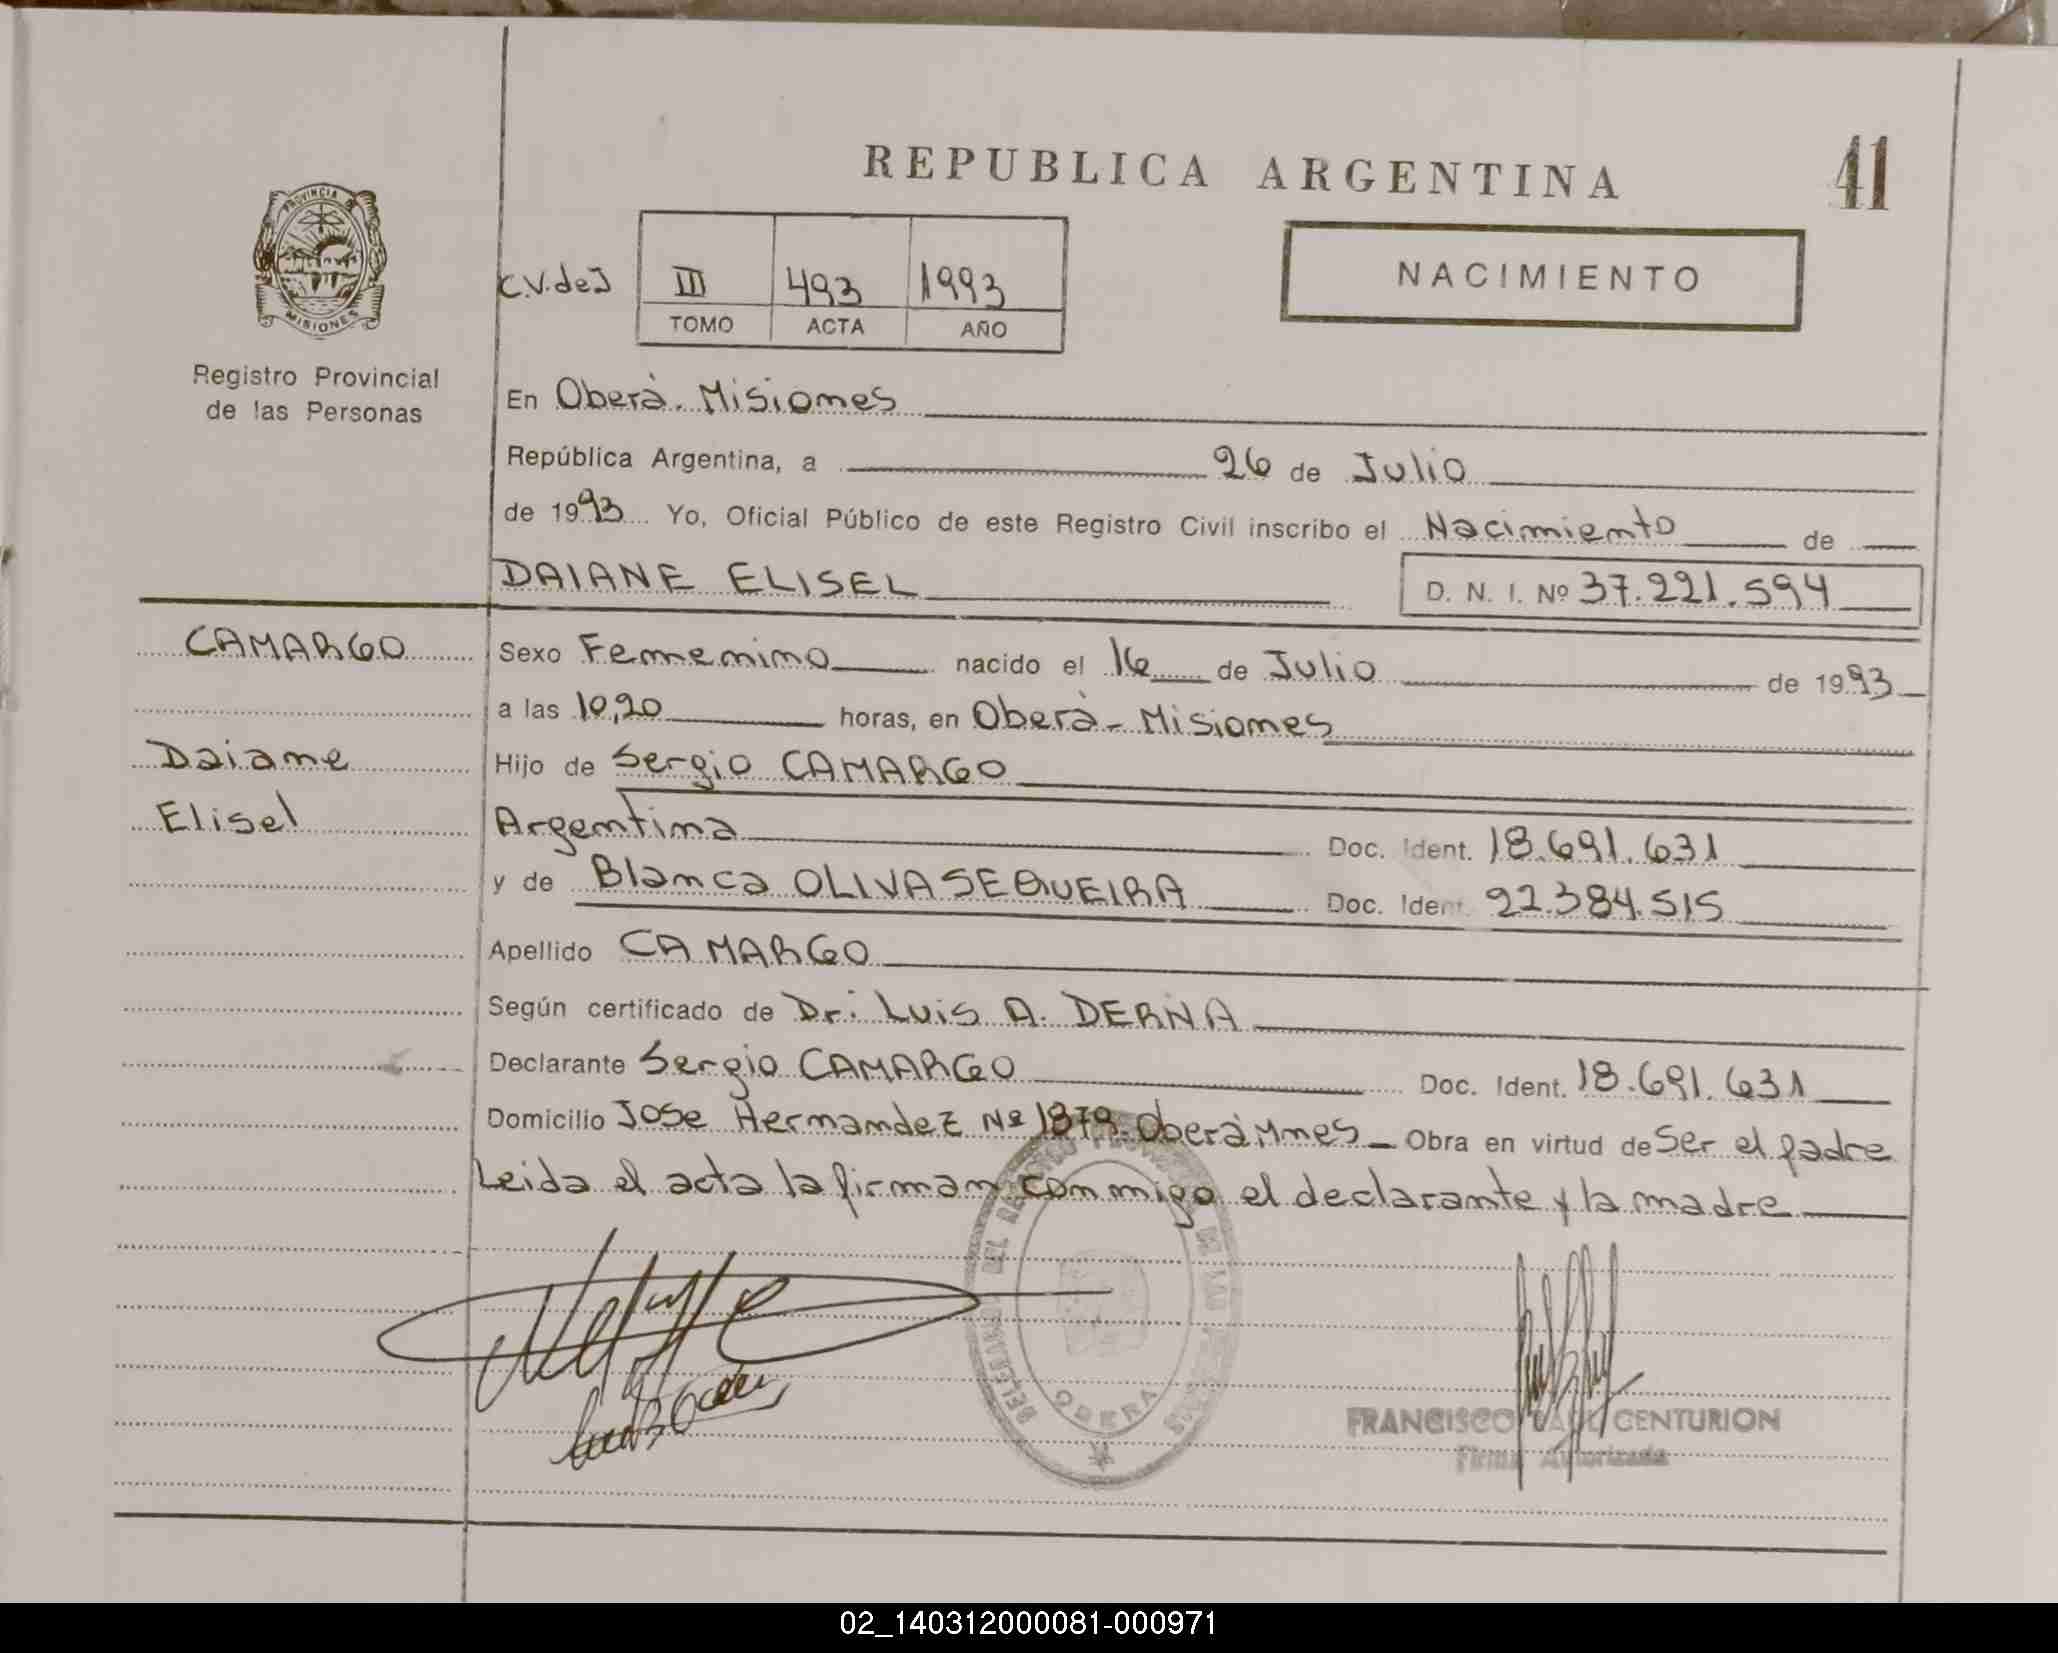 REPUBLICA ARGENTINA
41
PROVINCIA DE
MISIONES
Registro Provincial
de las Personas
C.V.deJ
III 493 1993
TOMO ACTA AÑO
NACIMIENTO
En Oberà. Misiones
República Argentina, a 26 de Julio
de 1993 Yo, Oficial Público de este Registro Civil inscribo el Nacimiento de
DAIANE ELISEL D. N. I. Nº 37.221.594
CAMARGO
Daiane
Elisel
Sexo Femenino nacido el 16 de Julio de 1993
a las 10,20 horas, en Oberà - Misiones
Hijo de Sergio CAMARGO
Argentina Doc. Ident. 18.691.631
y de Blanca OLIVA SEQUEIRA Doc. Ident. 22.384.515
Apellido CAMARGO
Según certificado de Dr. Luis A. DERNA
Declarante Sergio CAMARGO Doc. Ident. 18.691.631
Domicilio Jose Hernandez Nº 1879. Oberà Mnes Obra en virtud de Ser el padre
Leida el acta la firman conmigo el declarante y la madre
OBERA
FRANCISCO RAUL CENTURION
Firma Autorizada
02_140312000081-000971